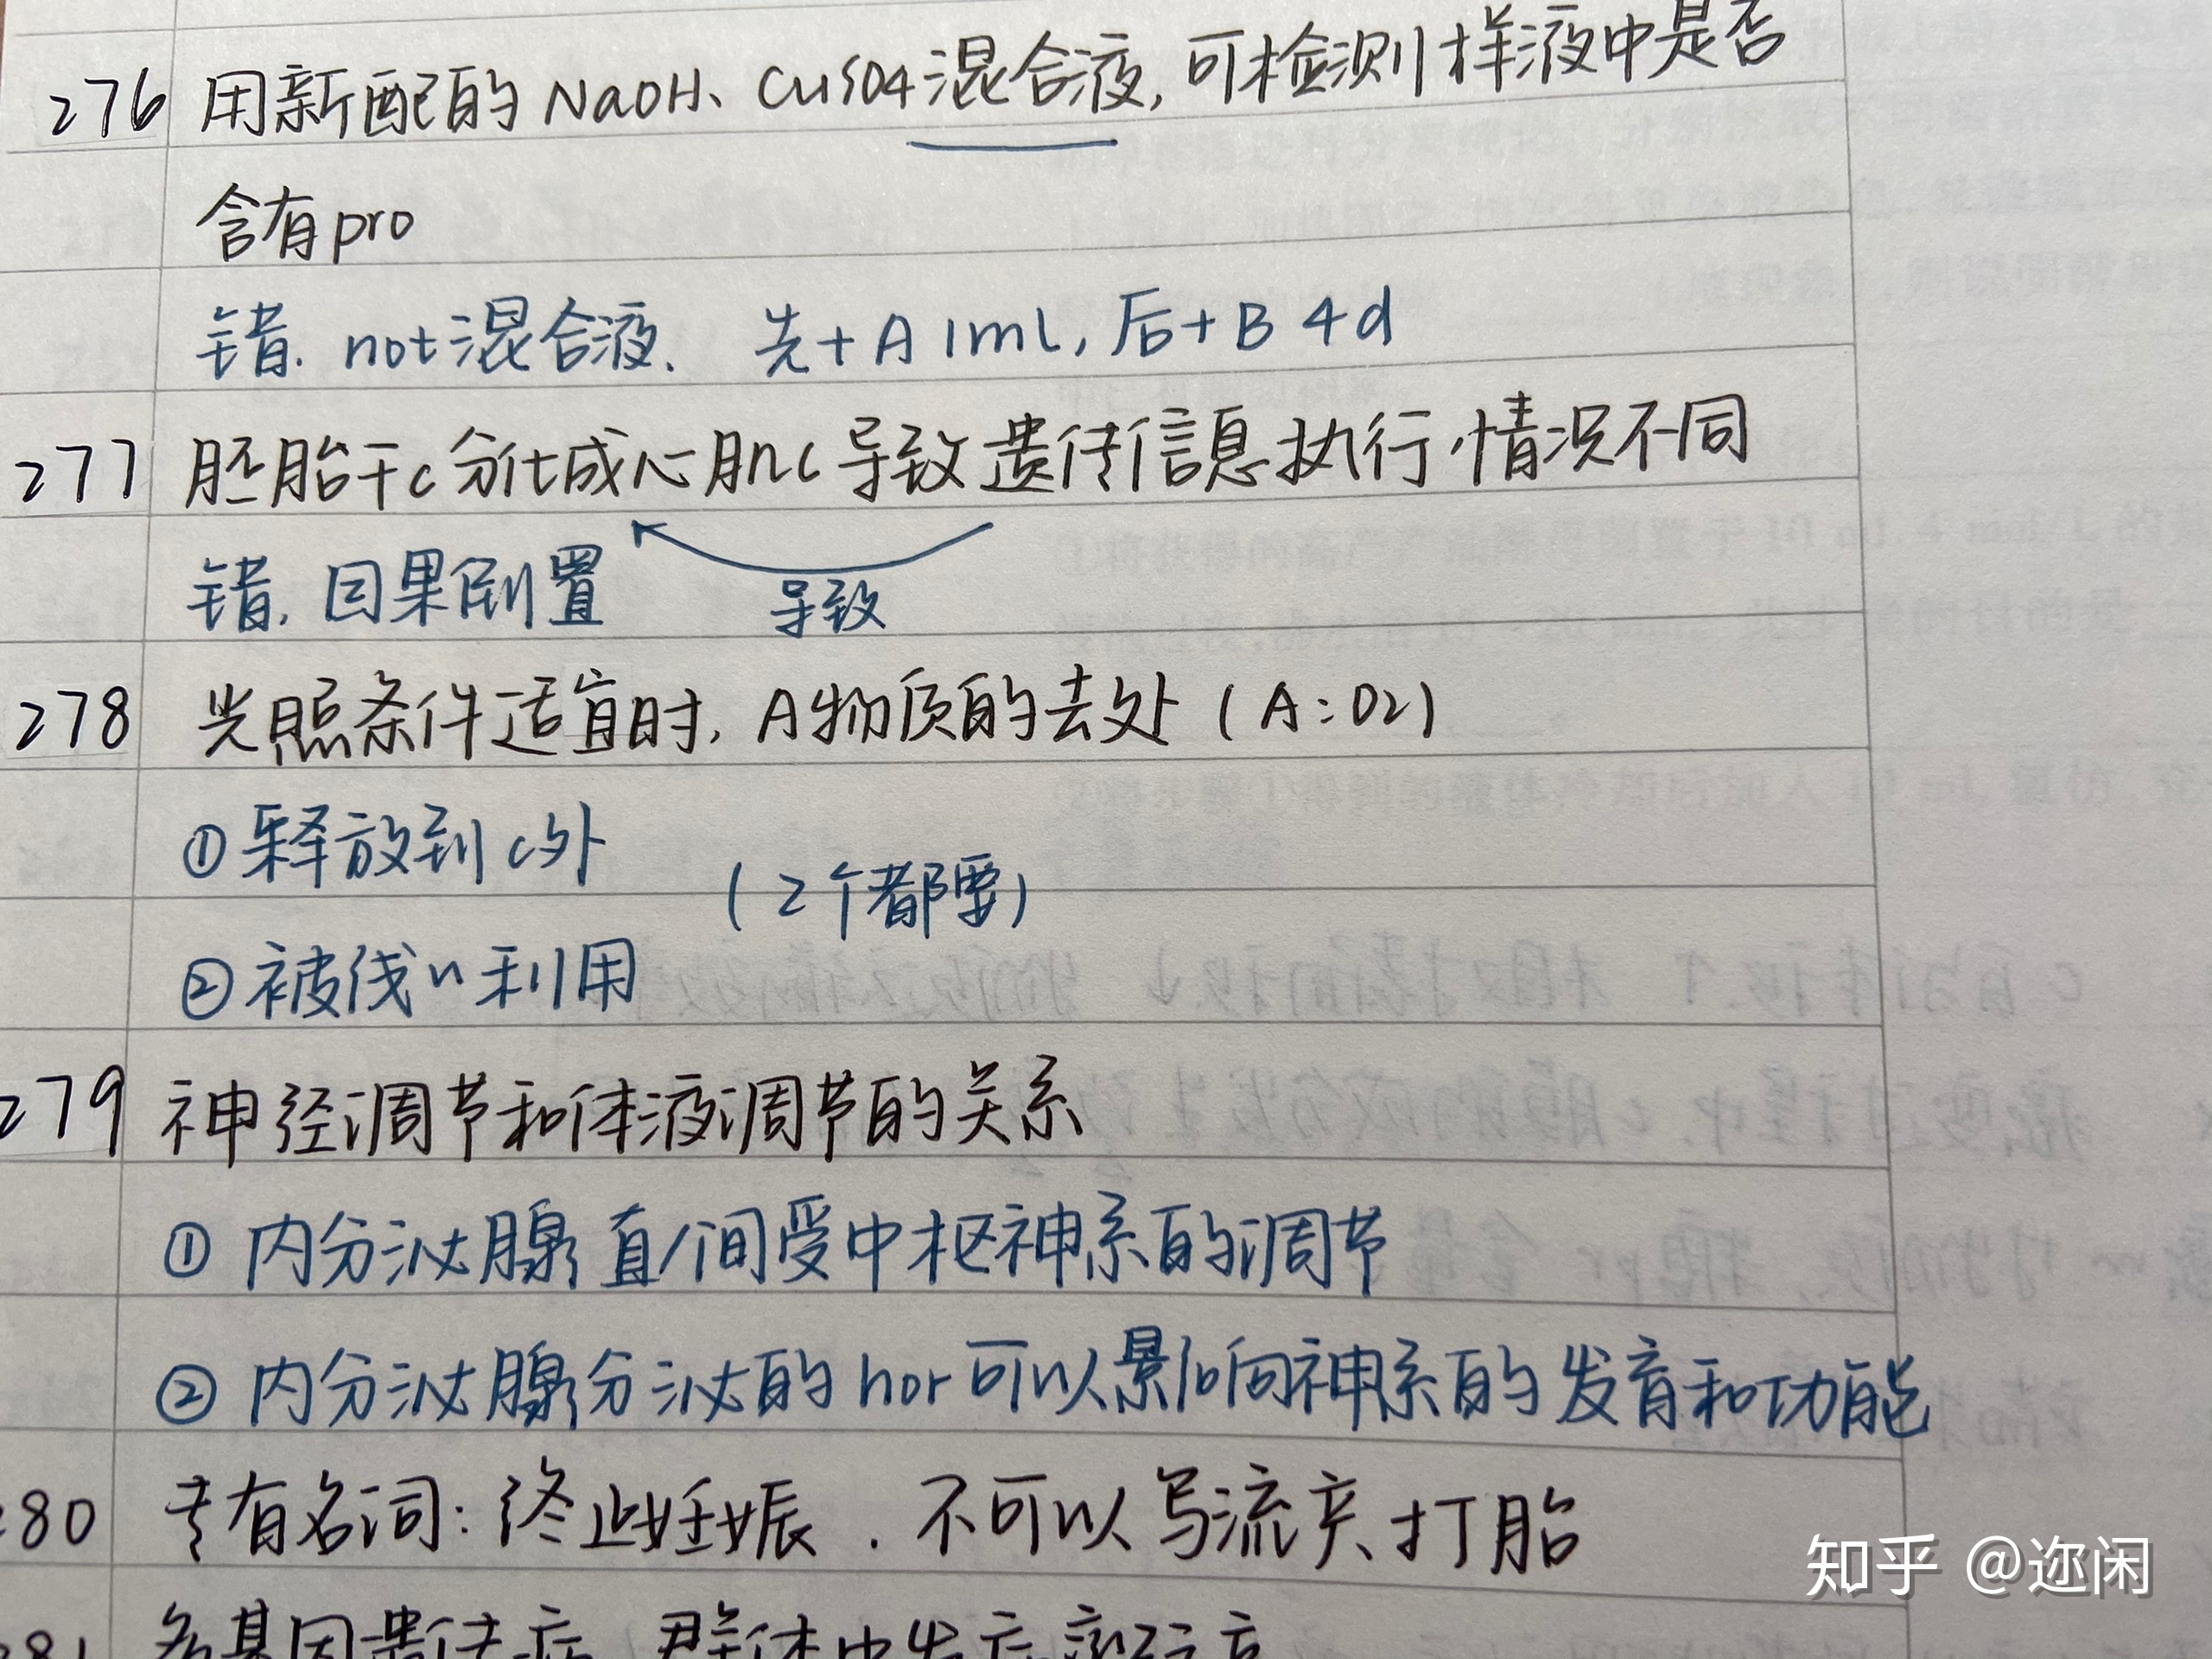 276 用新配的NaOH、CuSO4混合液,可检测样液中是否
含有pro
错. not混合液. 先+A 1ml,后+B 4d
277 胚胎干c分化成心肌c导致遗传信息执行情况不同
错. 因果倒置
导致
278 光照条件适宜时,A物质的去处(A:O2)
①释放到c外
(2个都要)
②被线n利用
279 神经调节和体液调节的关系
①内分泌腺直/间受中枢神系的调节
②内分泌腺分泌的hor可以影响神系的发育和功能
280 专有名词:终止妊娠.不可以写流产、打胎
多基因遗传病 群体中发病率较高
知乎 @迩闲